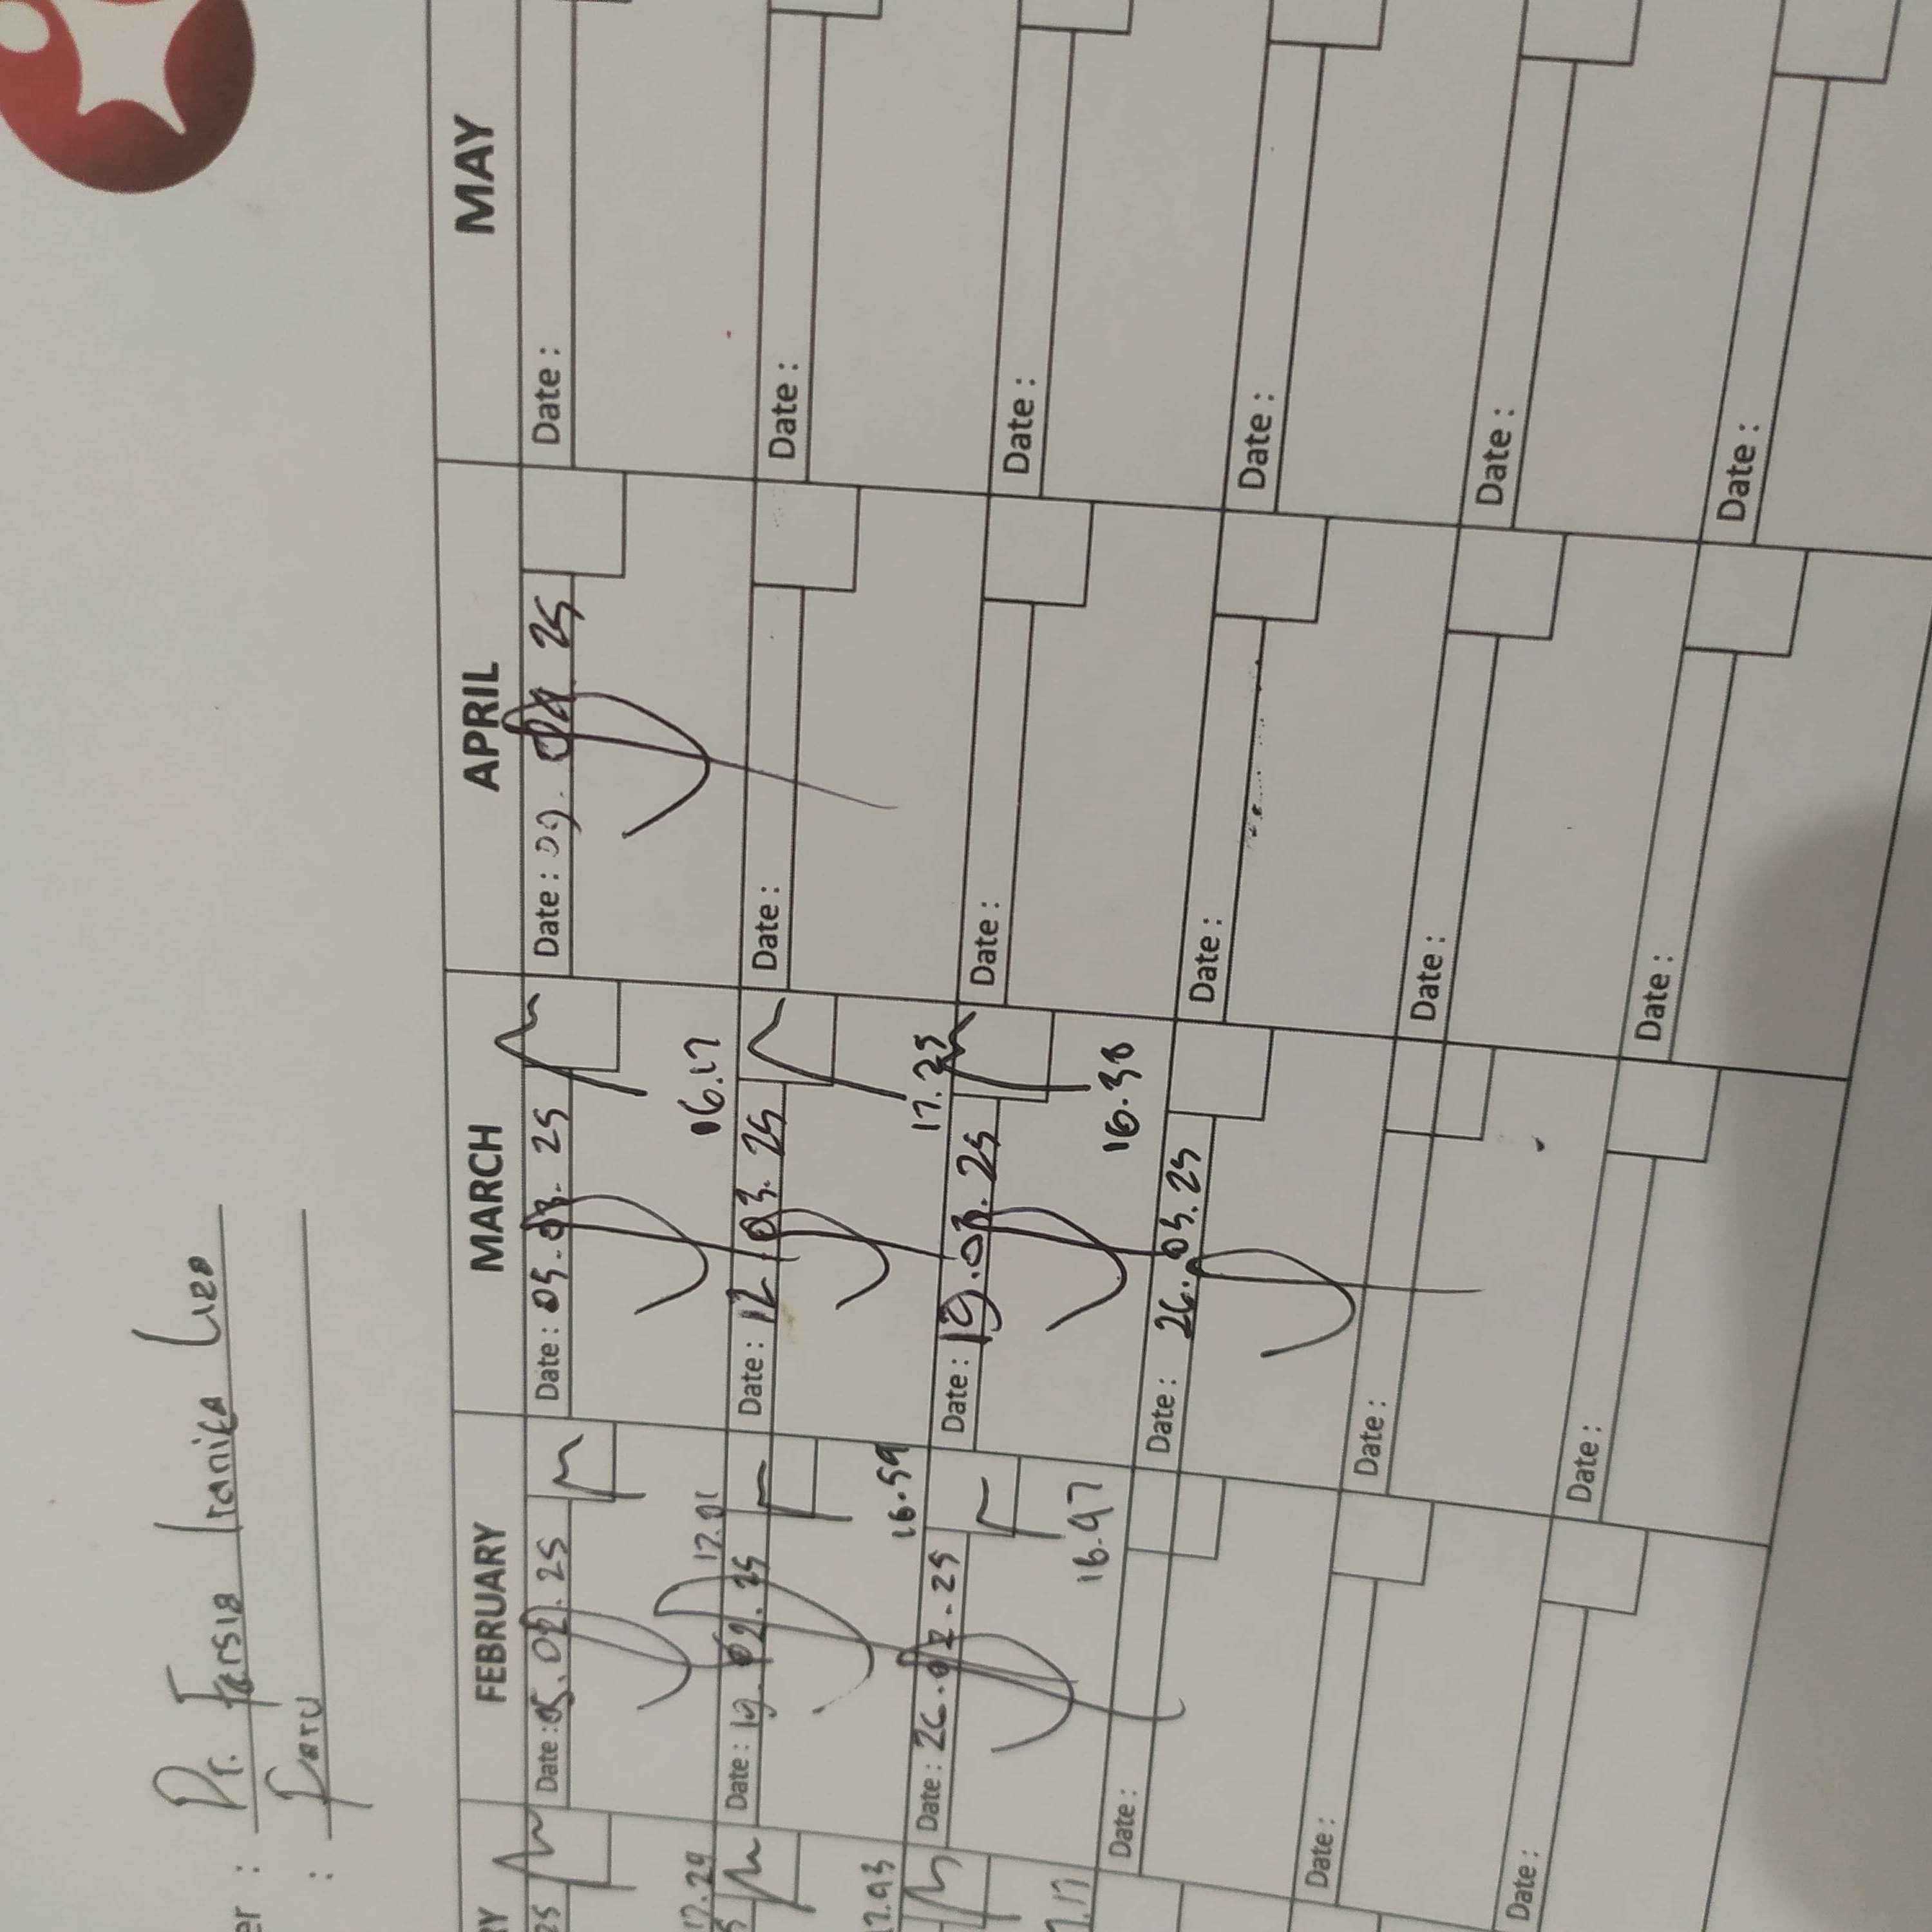 er : Dr. Farsia Iranita Liza
: Paru
RY FEBRUARY MARCH APRIL MAY
25 Date : 05.02.25 Date : 05.03.25 Date : 09.04 25 Date :
17.29 17.01 16.17
Date : 19.02.25 Date : 12.03.25 Date : Date :
17.43 16.59 17.25
Date : 26.02.25 Date : 19.03.25 Date : Date :
16.47 16.38
Date : Date : 26.03.25 Date : Date :
Date : Date : Date : Date :
Date : Date : Date : Date :